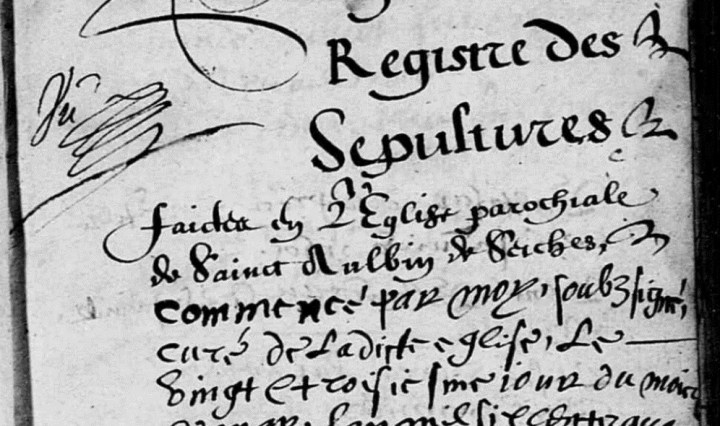 Vu
Registre des
Sepultures
faictes en L'Eglise parochiale
de Sainct Aulbin de Seiches,
commencé par moy, soubzsigné,
curé de Ladicte eglise, Le
vingt et troisiesme jour du mois